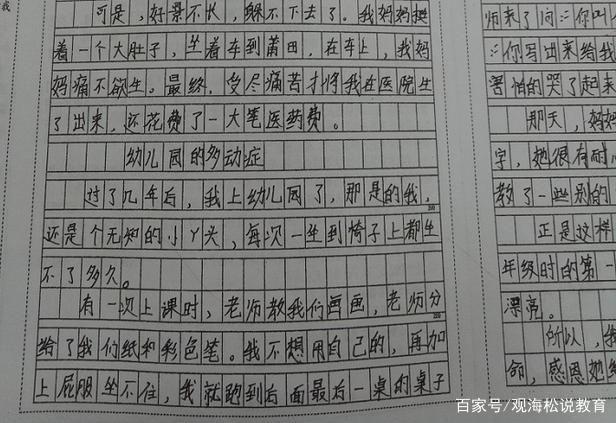 可是，好景不长，躲不下去了。我妈妈挺
着一个大肚子，坐着车到莆田，在车上，我妈
妈痛不欲生。最终，受尽痛苦才将我在医院生
了出来，还花费了一大笔医药费。
幼儿园的多动症
过了几年后，我上幼儿园了，那是的我，
还是个无知的小丫头，每次一坐到椅子上都坐
不了多久。
有一次上课时，老师教我们画画，老师分
给了我们纸和彩色笔。我不想用自己的，再加
上屁股坐不住，我就跑到后面最后一桌的桌子
200
我
师来了问："你叫
："你写出来给我
害怕的哭了起来
那天，妈妈
字，她很有耐
教了一些别的
正是这样
年级时的第一
漂亮。
所以，我
命，感恩她
百家号/观海松说教育